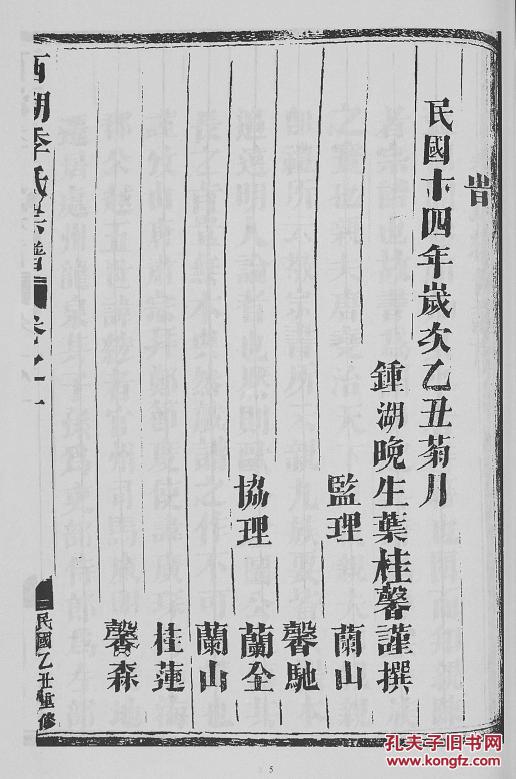 旹
民國十四年歲次乙丑菊月
鍾湖晚生葉桂馨謹撰
監理 蘭山
馨馳
協理 蘭全
蘭山
桂蓮
馨森
西湖季氏宗譜 卷之一
民國乙丑重修
5
孔夫子旧书网